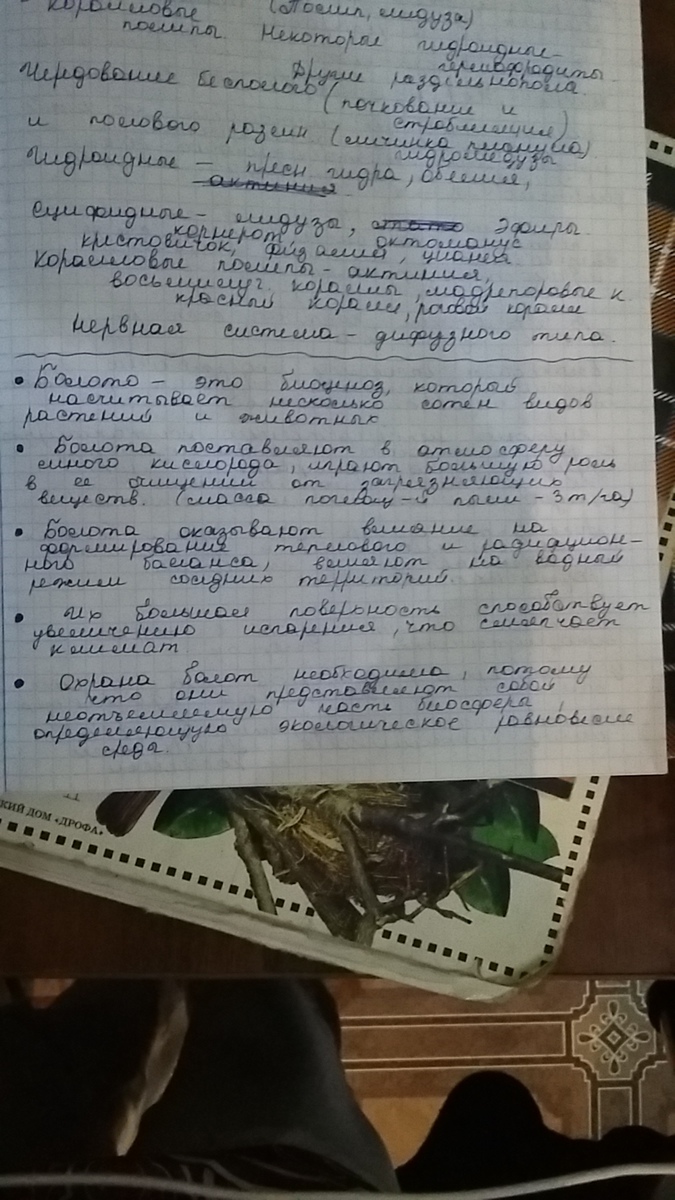 коралловые (Полип, медуза)
полипы. Некоторые гидроидные-
гермафродиты
Другие раздельнополы.
Чередование бесполого (почкование и
стробиляция)
и полового размн (личинка планула)
гидромедузы
Гидроидные - пресн гидра, обелия,
актиния
Сцифоидные - медуза, Эфиры.
корнерот
крестовичок, физалия, цианея
Коралловые полипы - актиния,
восьмилуч. кораллы, мадрепоровые к
красный коралл, роговой коралл
Нервная система - дифузного типа.
• Болото - это биоциноз, который
насчитывает несколько сотен видов
растений и животных
• Болота поставляют в атмосферу
много кислорода, играют большую роль
в ее очищении от загрязняющих
веществ. (масса поглощ-й пыли - 3т/га)
• Болота оказывают влияние на
формирование теплового и радиацион-
ного баланса, влияют на водный
режим соседних территорий.
• Их большая поверхность способствует
увеличению испарения, что смягчает
климат
• Охрана болот необходима, потому
что они представляют собой
неотъемлемую часть биосферы,
определяющую экологическое равновесие
среды.
КИЙ ДОМ «ДРОФА»